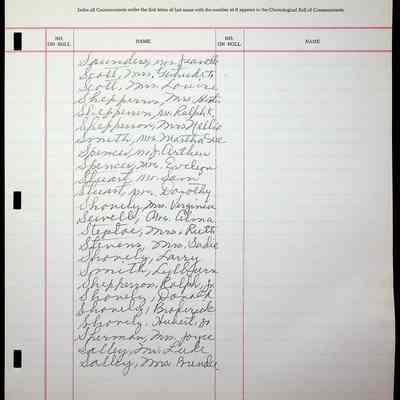 Index all Communicants under the first letter of last name with the number as it appears in the Chronological Roll of Communicants
NO. ON ROLL NAME NO. ON ROLL NAME
Saunders, Mrs
Scott, Mrs.
Scott, Mrs. Louise
Shepperson, Mrs.
Shepperson, Mr. Ralph
Shepperson, Mrs Nellie
Smith, Mrs Martha Sue
Spencer, Mr. Arthur
Spencer, Mrs. Evelyn
Stuart, Mr. Sam
Stuart, Mrs. Dorothy
Shovely, Mrs. Virginia
Sewell, Mrs. Alma
Steptoe, Mrs. Ruth
Stevens, Mrs. Sadie
Shovely, Larry
Smith,
Shepperson, Ralph, Jr
Shovely, Donald
Shovely, Broderick
Shovely, Hubert, Jr
Sherman, Mrs. Joyce
Salley, Mr. Luke
Salley, Mrs Brenda